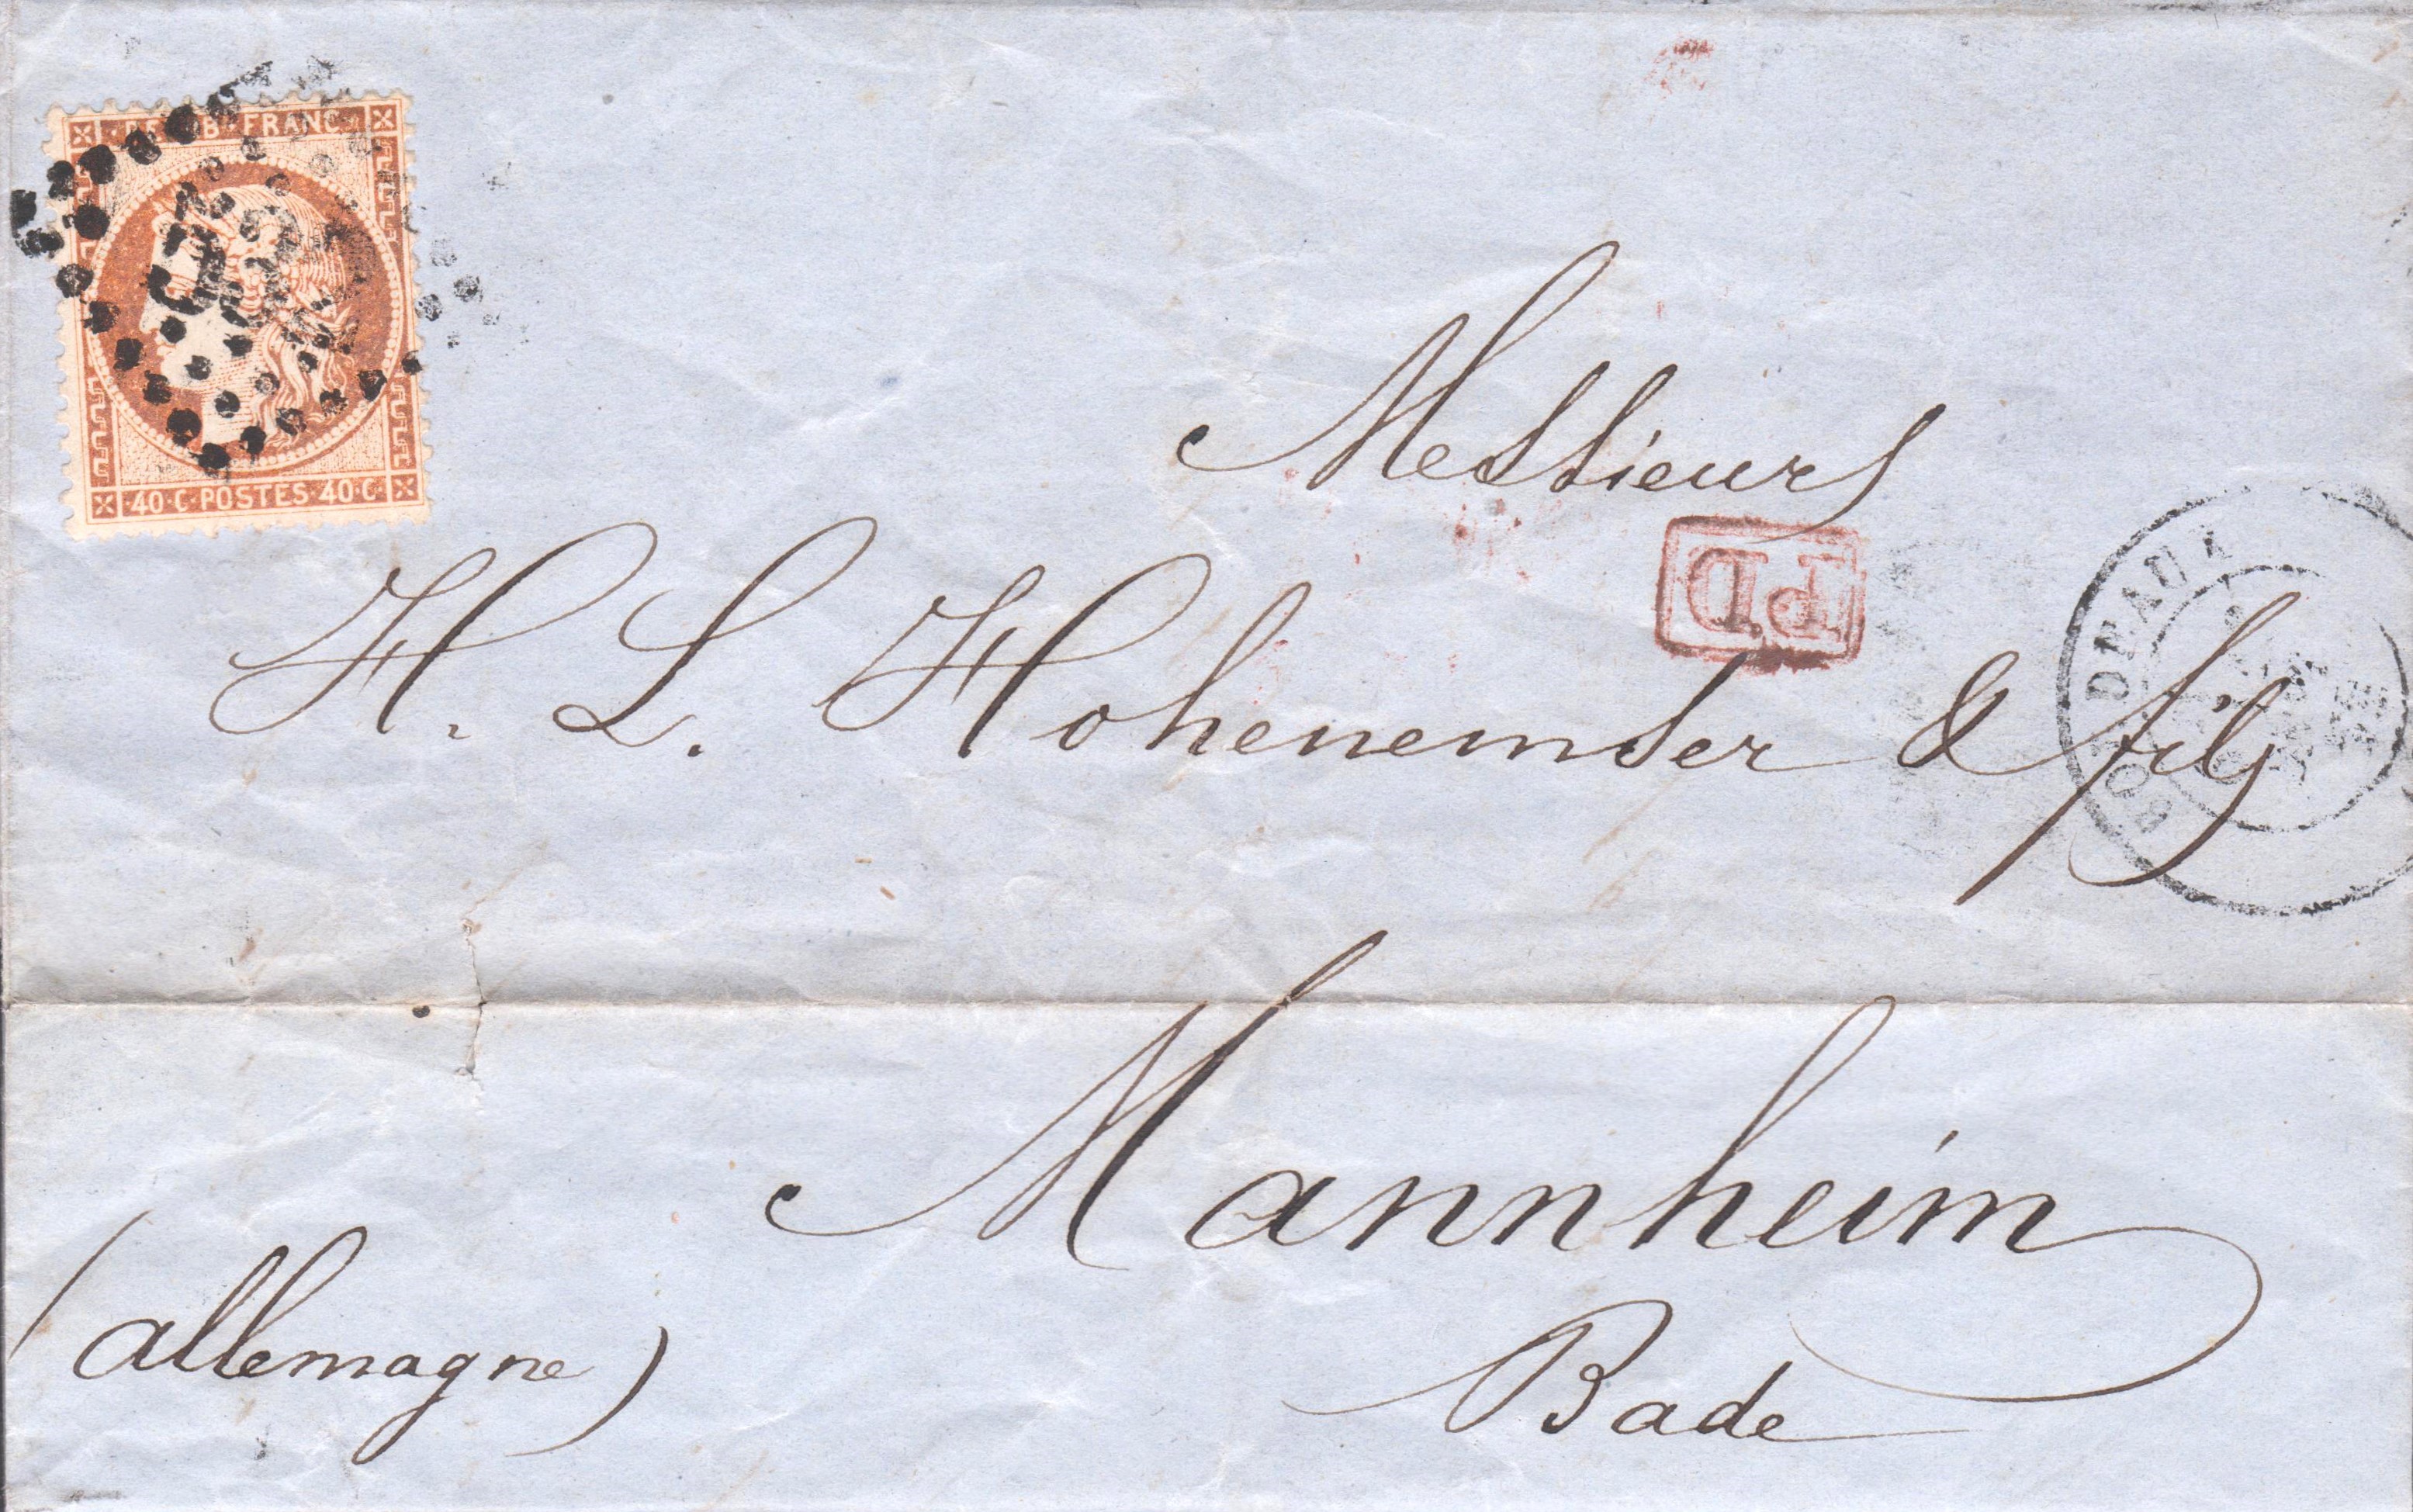 REPUB·FRANC
532
40·C·POSTES·40·C·
Messieurs
P.D.
H. L. Hohenemser & fils
BORDEAUX
Mannheim
(allemagne)
Bade